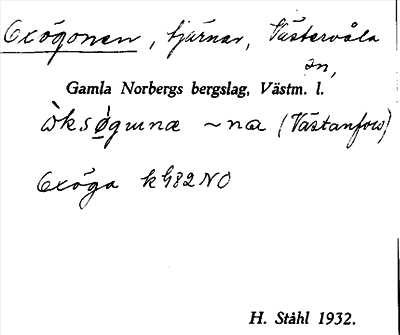 Oxögonen, tjärnar, Västervåla
sn,
Gamla Norbergs bergslag, Västm. l.
(Västanfors)
Oxöga k G82 NO
H. Ståhl 1932.